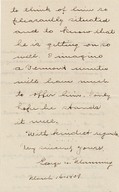 to think of him as
pleasantly situated
and to know that
he is getting on so
well. I imagine
a Vermont winter
will have much
to offer him. I only
hope he stands
it well.
With kindest regards
Very sincerely yours,
George
March